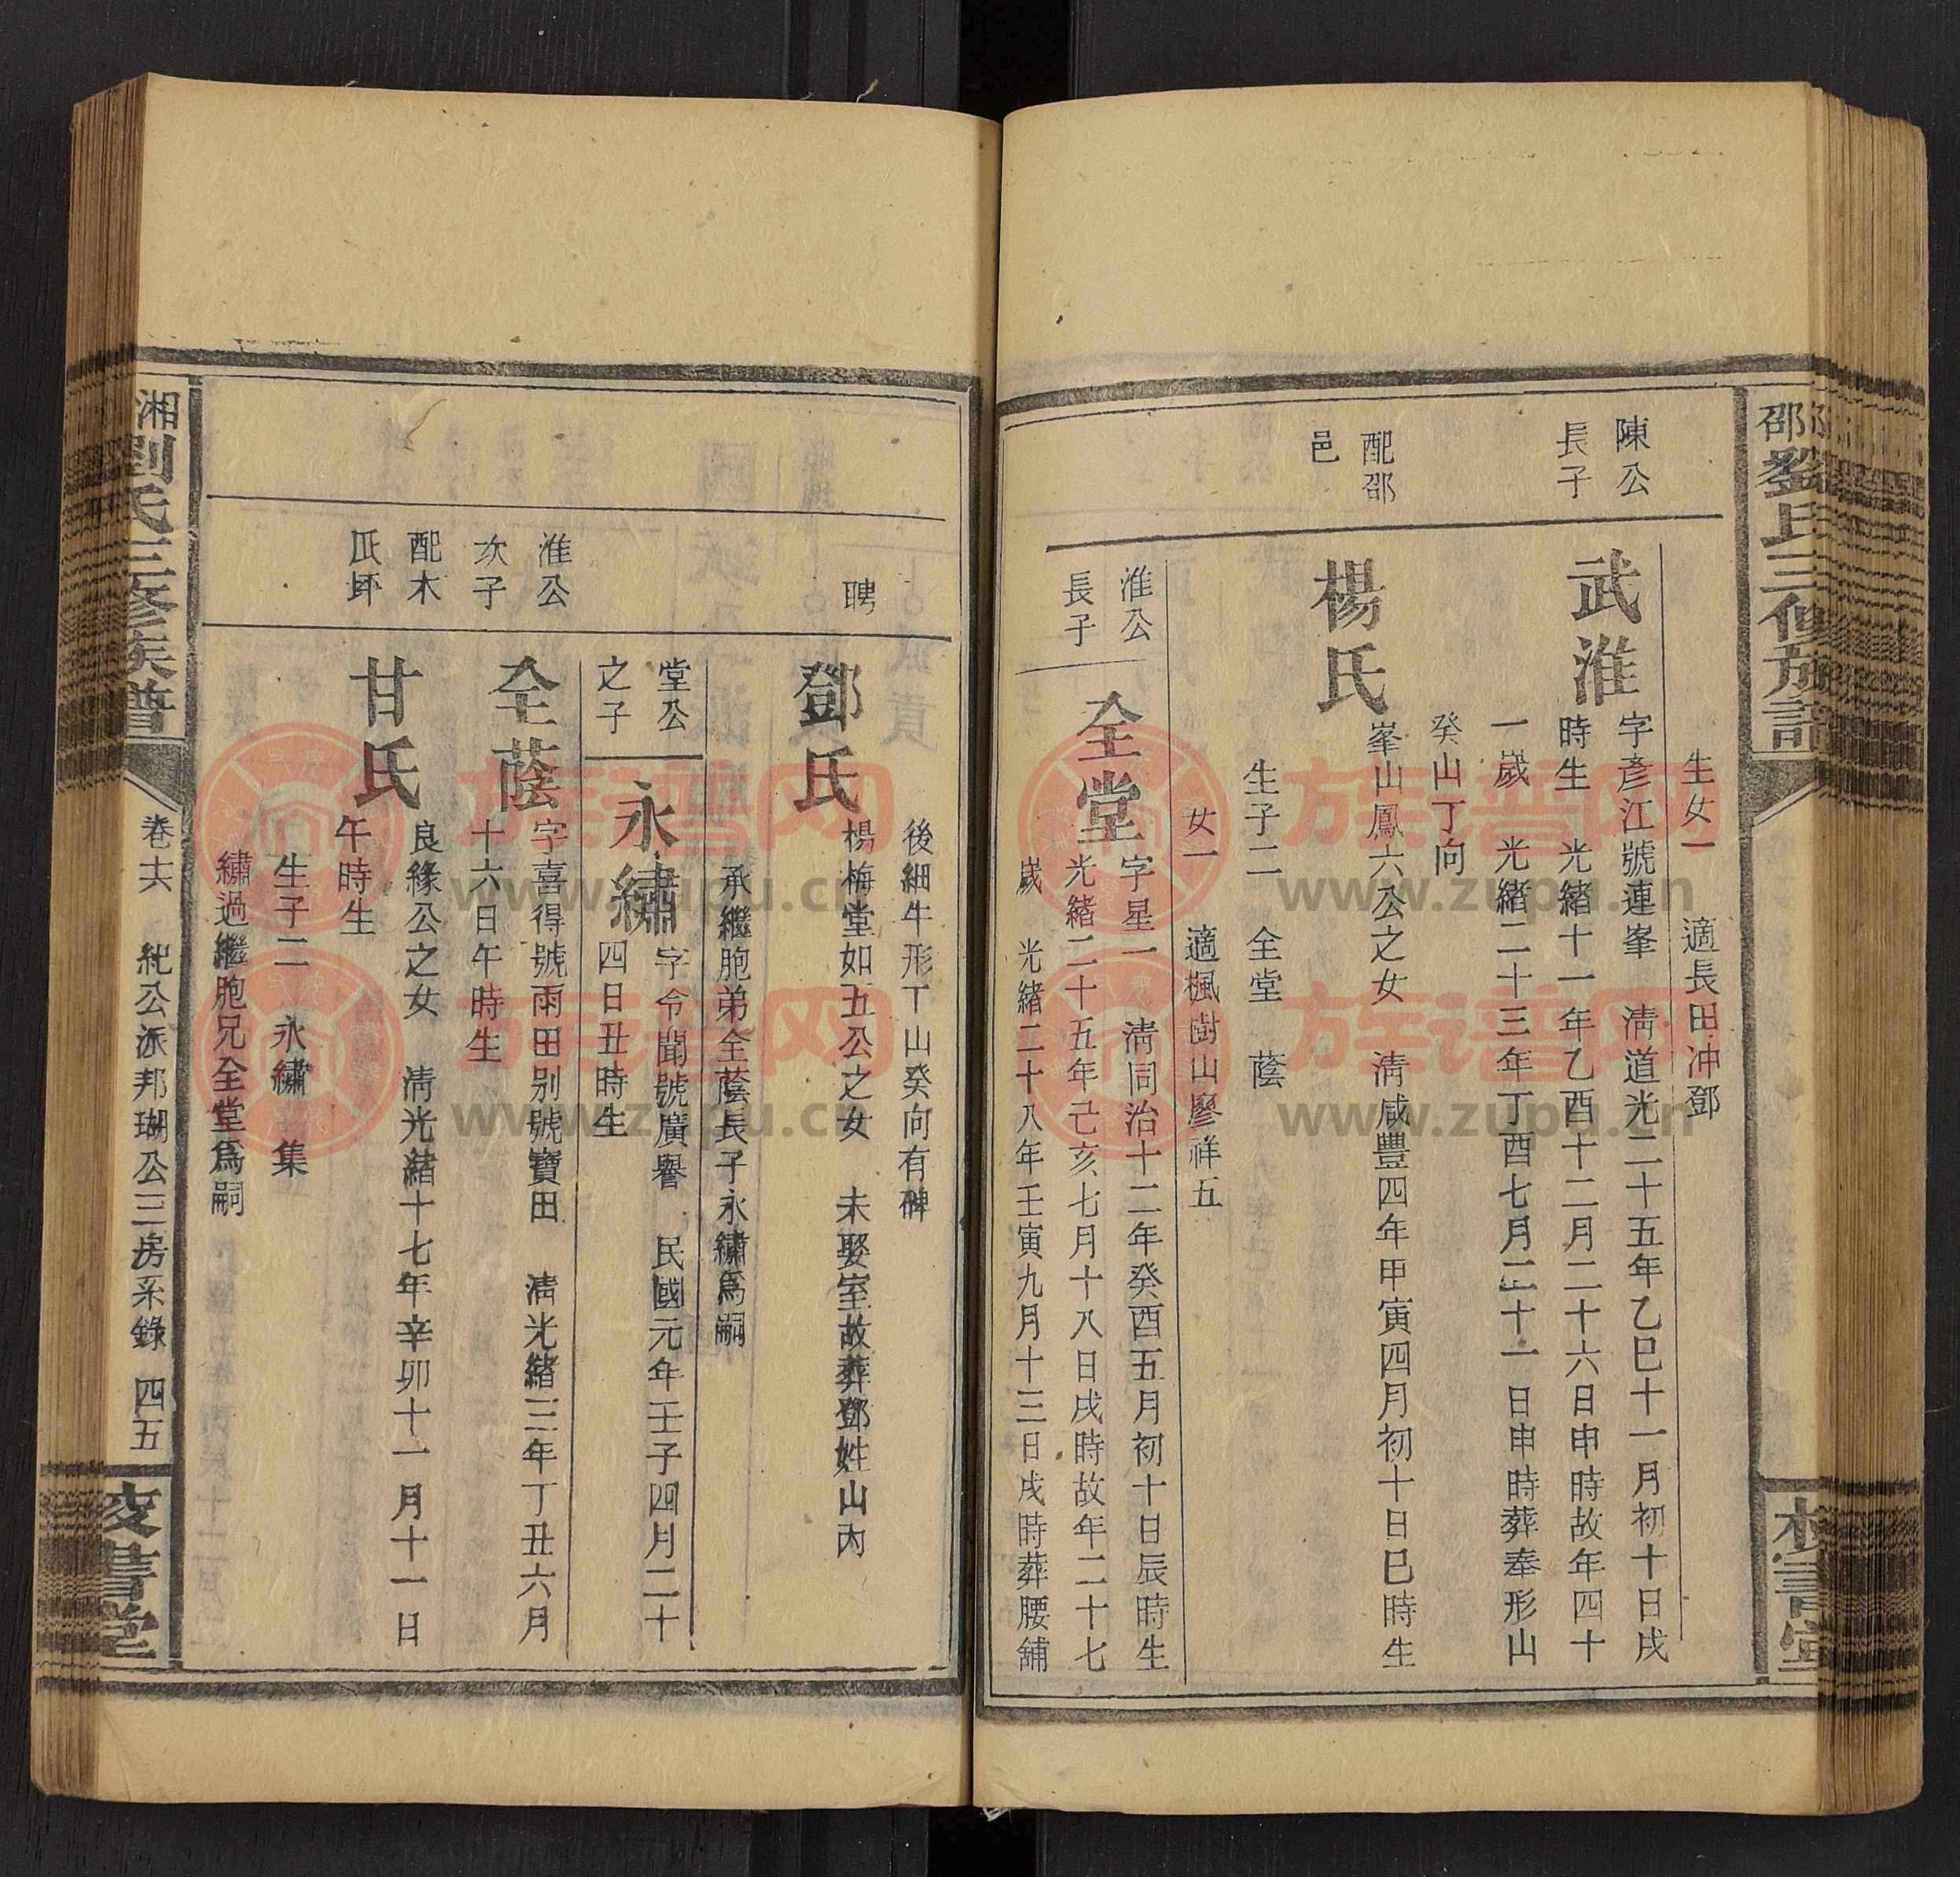 邵劉氏三修族譜
生女一　適長田冲鄧
陳公
長子
武淮
字彥江號連峯　清道光二十五年乙巳十一月初十日戌
時生　光緒十一年乙酉十二月二十六日申時故年四十
一歲　光緒二十三年丁酉七月二十一日申時葬奉形山
癸山丁向
配邵
邑
楊氏
峯山鳳六公之女　清咸豐四年甲寅四月初十日巳時生
生子二　全堂　蔭
女一　適楓樹山廖祥五
淮公
長子
全堂
字星一　清同治十二年癸酉五月初十日辰時生
光緒二十五年己亥七月十八日戌時故年二十七
歲　光緒二十八年壬寅九月十三日戌時葬腰舖
後細牛形丁山癸向有碑
聘
鄧氏
楊梅堂如五公之女　未娶室故葬鄧姓山內
承繼胞弟全蔭長子永繡爲嗣
堂公
之子
永繡
字令聞號廣譽　民國元年壬子四月二十
四日丑時生
淮公
次子
全蔭
字喜得號雨田别號寶田　清光緒三年丁丑六月
十六日午時生
配木
瓜坪
甘氏
良緣公之女　清光緒十七年辛卯十一月十一日
午時生
生子二　永繡　集
繡過繼胞兄全堂爲嗣
湘劉氏三修族譜
卷十六　紀公派邦瑚公三房系錄　四五
校書堂
族谱网
www.zupu.cn
族谱网
www.zupu.cn
族谱网
www.zupu.cn
族谱网
www.zupu.cn